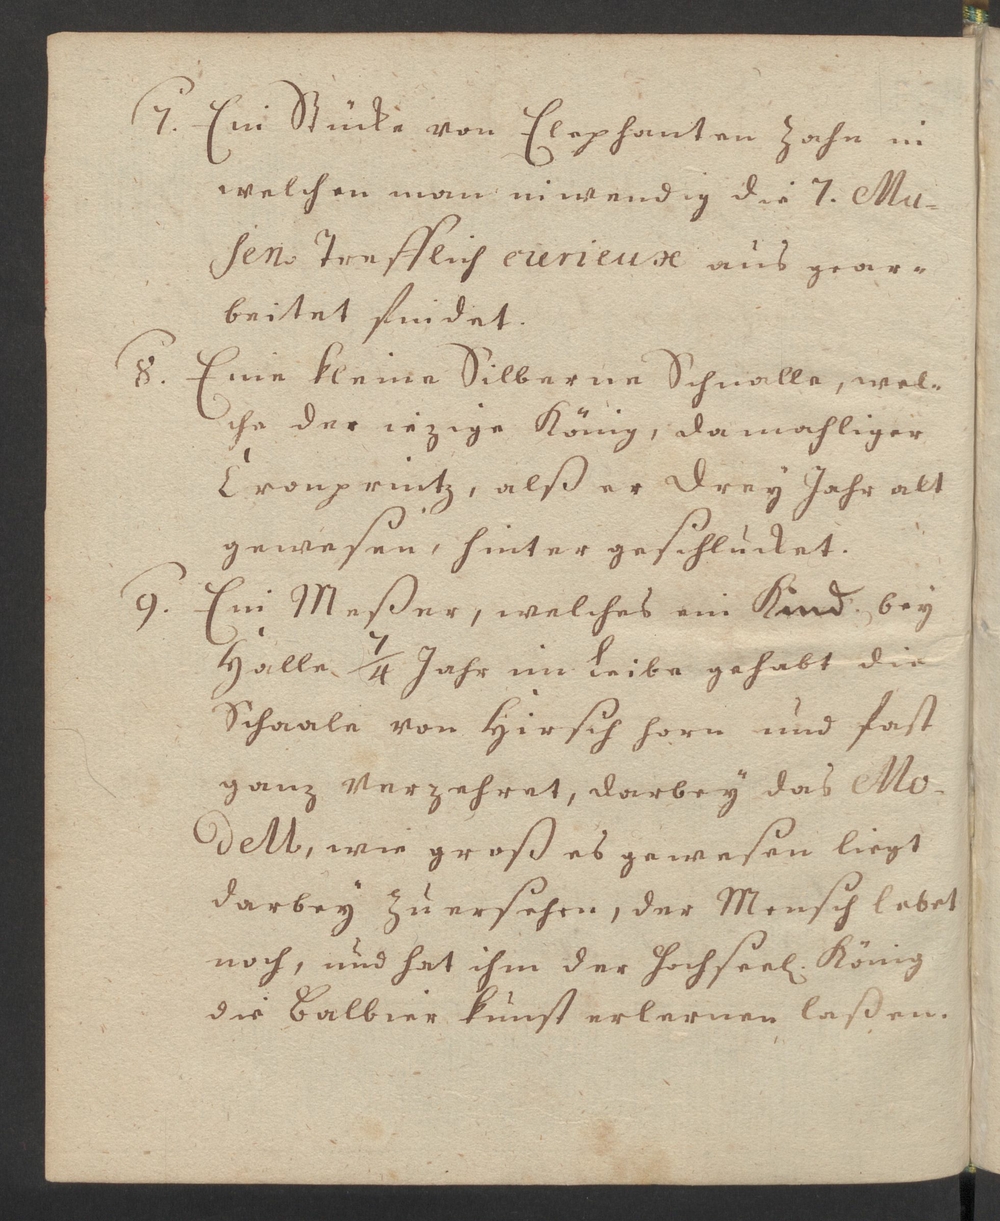 7. Ein Stücke von Elephanten Zahn in
welchen man inwendig die 7. Mu-
sen Trefflich curieux aus gear-
beitet findet.
8. Eine kleine Silberne Schnalle, wel-
che der iezige König, damahliger
Cronprintz, alß er Drey Jahr alt
gewesen, hinter geschlucket.
9. Ein Meßer, welches ein Kind bey
Halle 7/4 Jahr im Leibe gehabt die
Schaale von Hirsch horn und fast
ganz Verzehret, darbey das Mo-
dell, wie groß es gewesen liegt
darbey zu ersehen, der Mensch lebet
noch, und hat ihm der Hochseel. König
die Balbier kunst erlernen laßen.